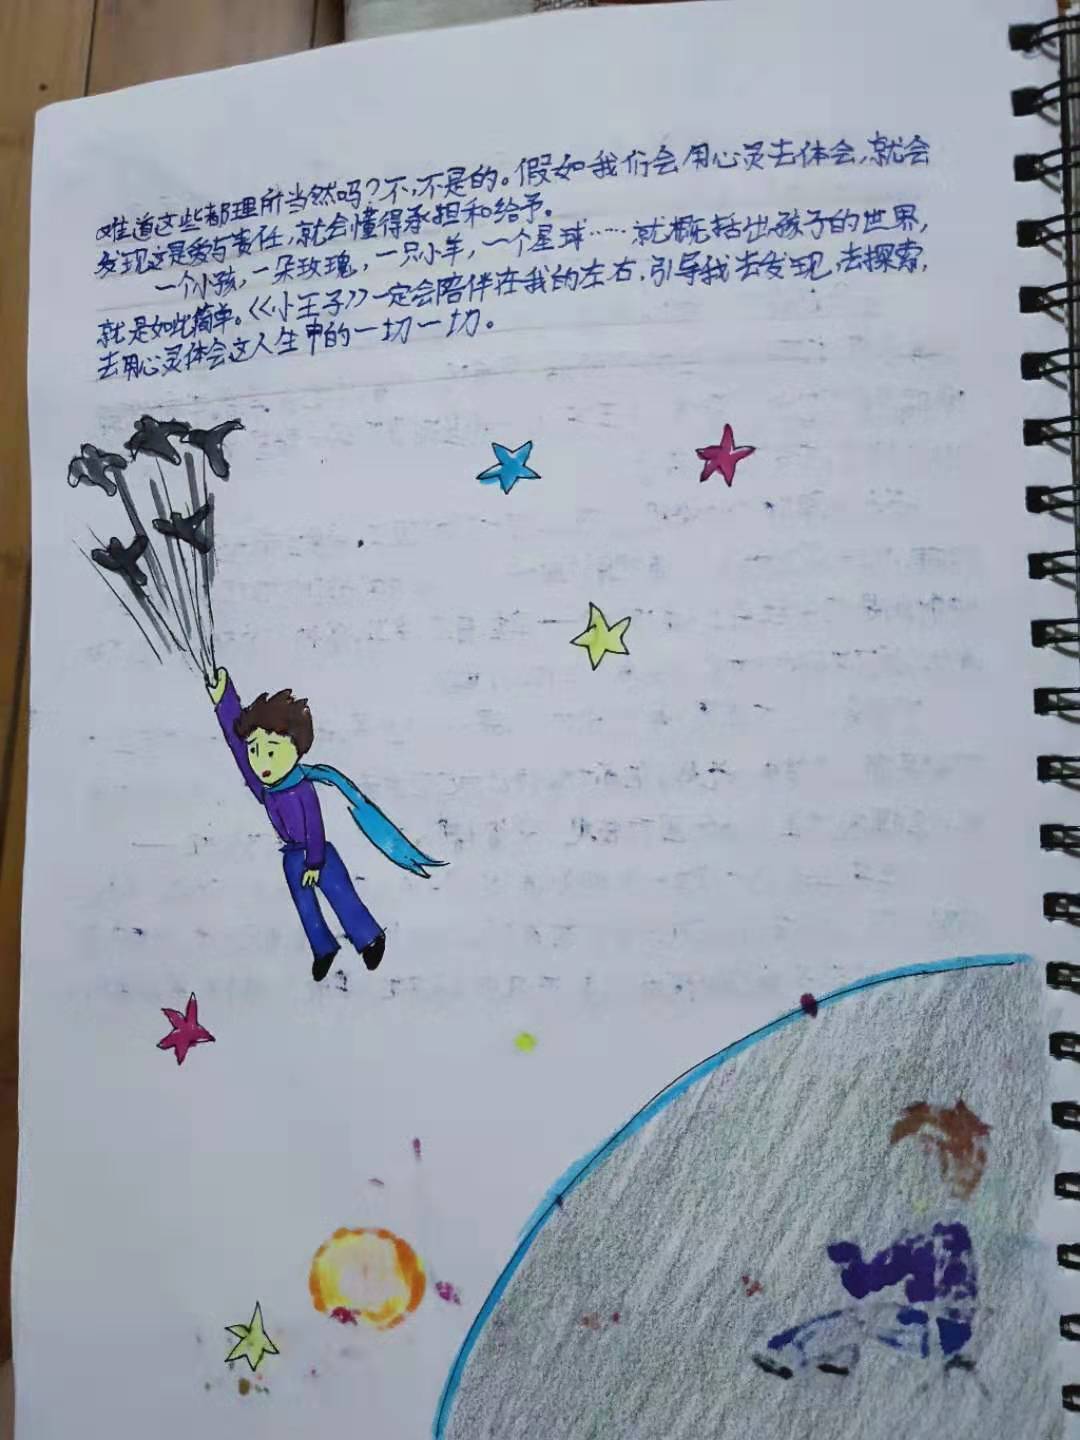 难道这些都理所当然吗?不,不是的。假如我们会用心灵去体会,就会
发现这是爱与责任,就会懂得承担和给予。
一个小孩,一朵玫瑰,一只小羊,一个星球……就概括出孩子的世界,
就是如此简单。《小王子》一定会陪伴在我的左右,引导我去发现,去探索,
去用心灵体会这人生中的一切一切。